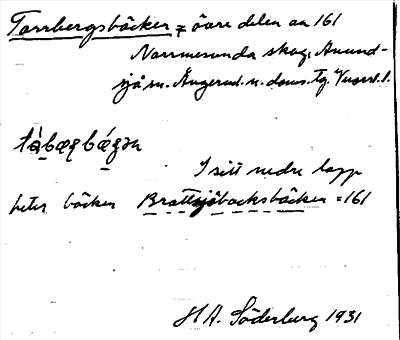 Tarrbergsbäcken = övre delen av 161
Norrmesunda skog, Anund-
sjö sn. Ångerml. n. doms. Tg. Vusrd. l.
tàbæɡbǽʒən
I sitt nedre lopp
heter bäcken Brattsjöbacksbäcken = 161
H A. Söderberg 1931